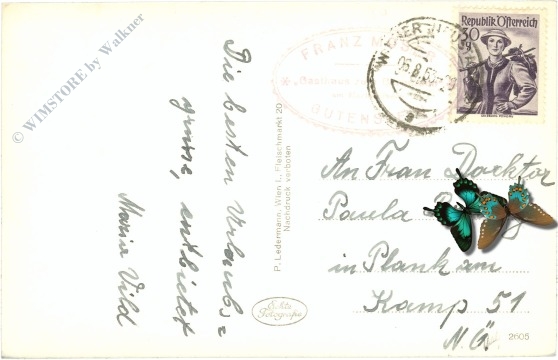 © WIMSTORE by Walkner
Die besten Urlaubs=
grüsse, entbietet
Maria Vild
P. Ledermann, Wien I., Fleischmarkt 20
Nachdruck verboten
Echte
Fotografie
FRANZ
GUTENS
WIENER
06.8.5
Republik Österreich
30
An Frau Docktor
Paula
in Plank am
Kamp 51
N.Ö.
2605